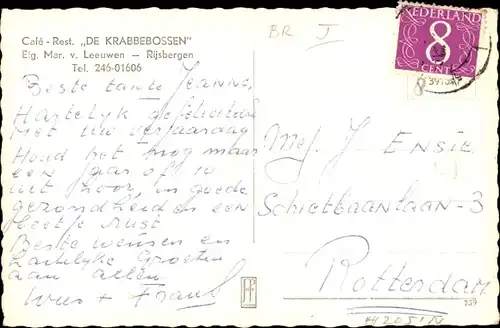 Café - Rest. „DE KRABBEBOSSEN"
Eig. Mar. v. Leeuwen — Rijsbergen
Tel. 246-01606
Beste tante Jeanne,
Hartelyk gefeliciteerd
Met uw verjaardag
Houd het nog maar
een jaar of 10
uit hoor, in goede
gezondheid en een
beetje rust
Beste wensen en
hartelyke Groeten
aan allen
Wies + Frank
BR I
NEDERLAND
8
CENT
8
Mej. J. ENSIE
Schietbaanlaan-3
Rotterdam
759